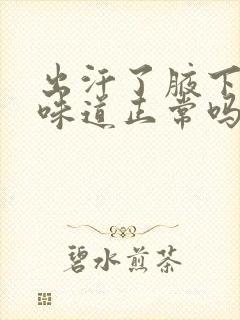 出汗了腋下
味道正常吗
碧水煎茶